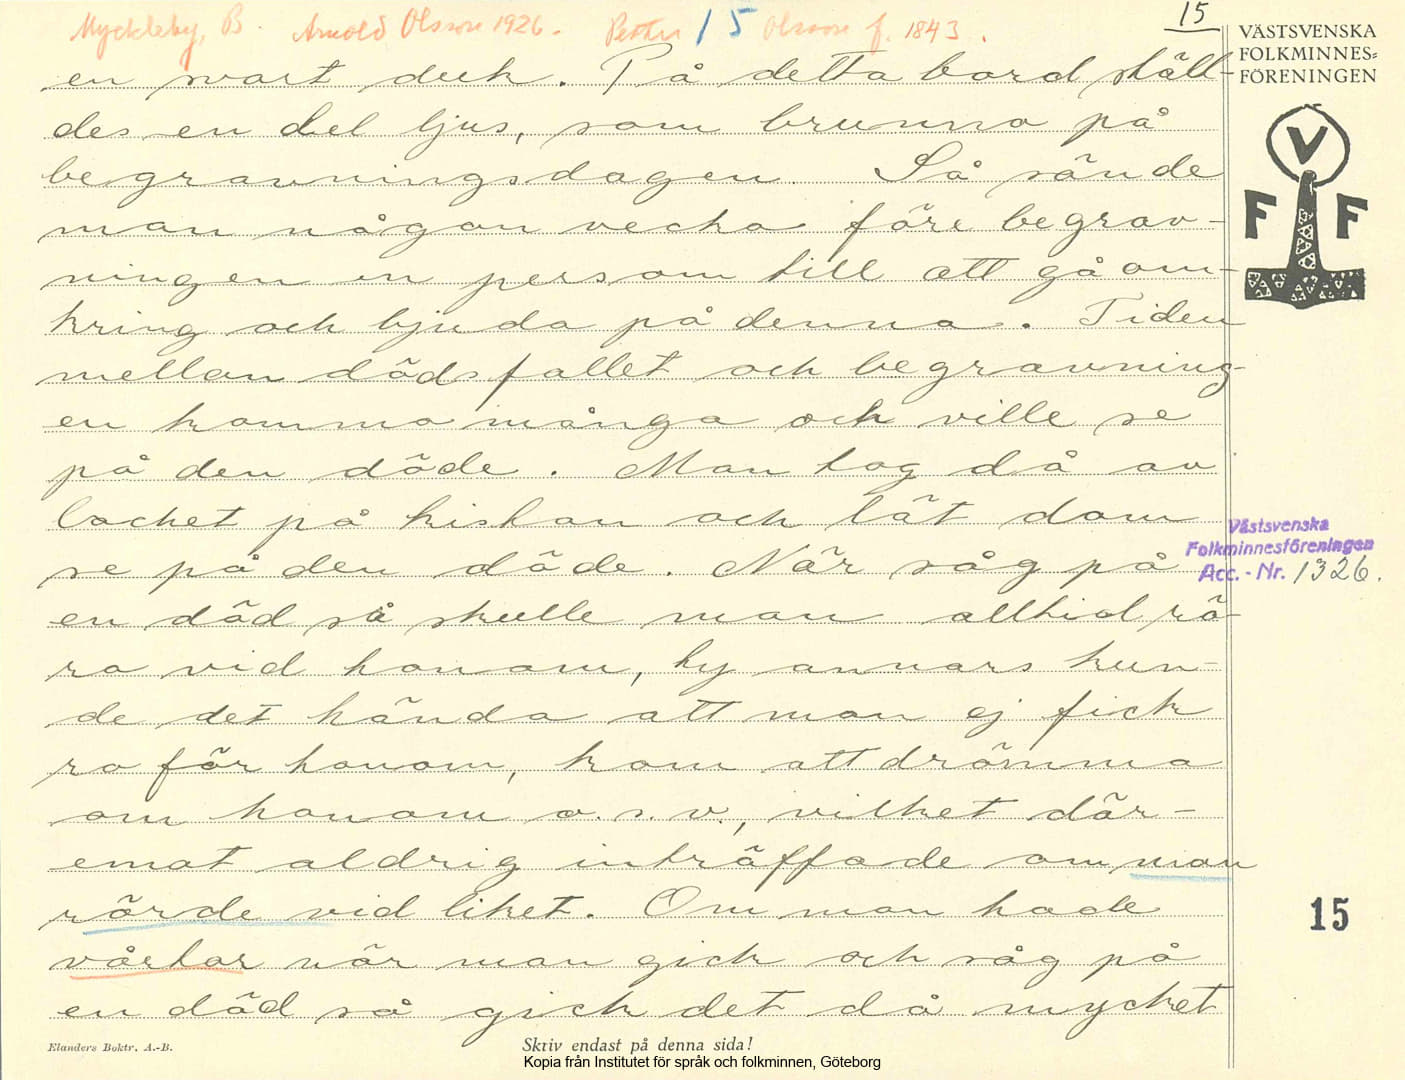 Myckleby, B. Arnold Olsson 1926. Petter 15 Olsson f. 1843.
15
VÄSTSVENSKA
FOLKMINNES=
FÖRENINGEN
V
F F
en svart duk. På detta bord ställ-
des en del ljus, som brunno på
begravningsdagen. Så sände
man någon vecka före begrav-
ningen en person till att gå om-
kring och bjuda på denna. Tiden
mellan dödsfallet och begravning-
en kommo många och ville se
på den döde. Man tog då av
locket på kistan och lät dom
se på den döde. När såg på
en död så skulle man alltid rö-
ra vid honom, ty annars kun-
de det hända att man ej fick
ro för honom, kom att drömma
om honom o.s.v., vilket där-
emot aldrig inträffade om man
rörde vid liket. Om man hade
vårtor när man gick och såg på
en död så gick det då mycket
Västsvenska
Folkminnesföreningen
Acc. - Nr. 1326.
15
Elanders Boktr. A.-B.
Skriv endast på denna sida!
Kopia från Institutet för språk och folkminnen, Göteborg